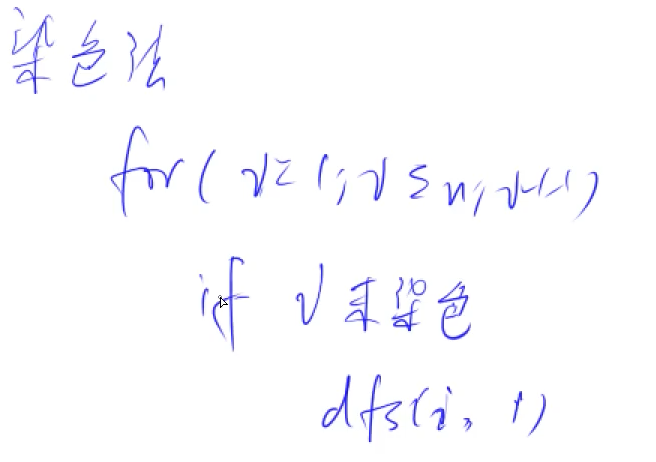 染色法
for( i=1; i≤n; i++)
if i 未染色
dfs(i, 1)